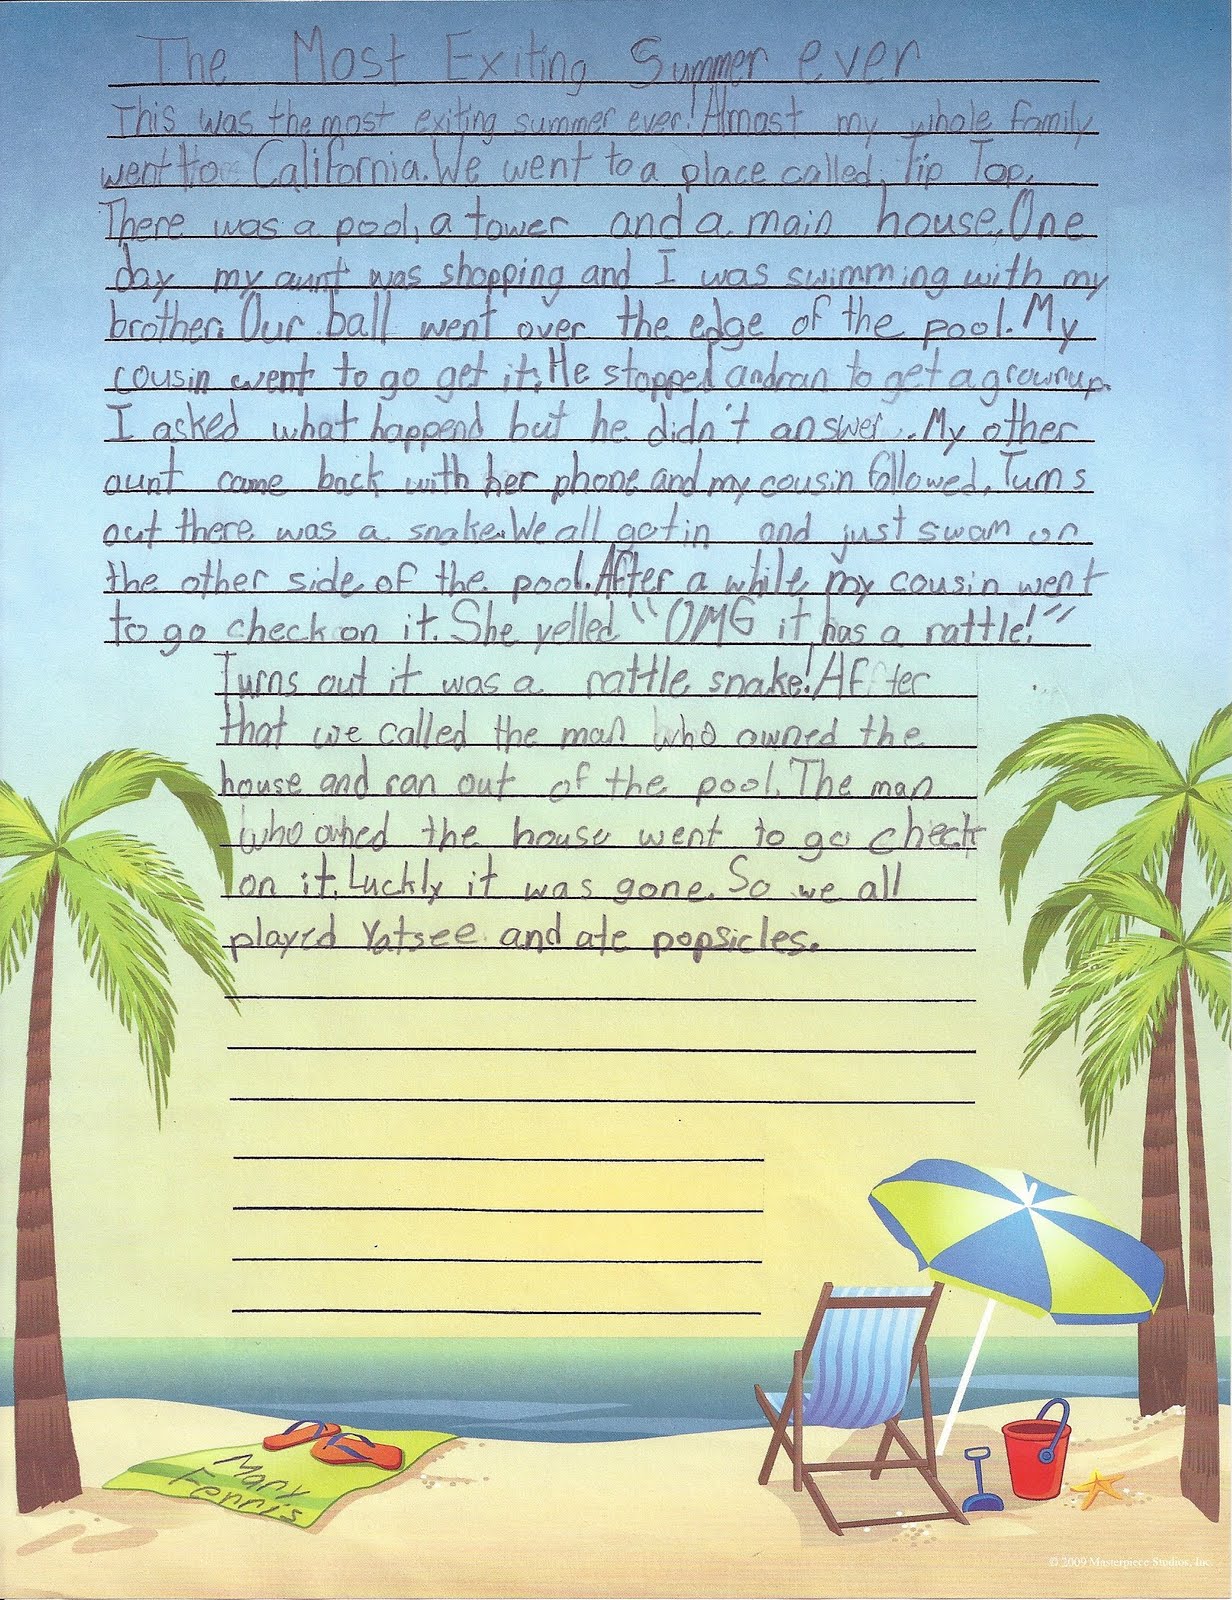 The Most Exiting Summer ever
This was the most exiting summer ever! Almost my whole family
went to California. We went to a place called, Tip Top.
There was a pool, a tower and a main house. One
day my aunt was shopping and I was swimming with my
brother. Our ball went over the edge of the pool. My
cousin went to go get it. He stopped and ran to get a grownup.
I asked what happend but he didn't answer. My other
aunt came back with her phone and my cousin followed. Turns
out there was a snake. We all got in and just swam on
the other side of the pool. After a while my cousin went
to go check on it. She yelled "OMG it has a rattle!"
Turns out it was a rattle snake! After
that we called the man who owned the
house and ran out of the pool. The man
who owned the house went to go check
on it. Luckly it was gone. So we all
played Yatsee and ate popsicles.
Mary
Ferris
© 2009 Masterpiece Studios, Inc.